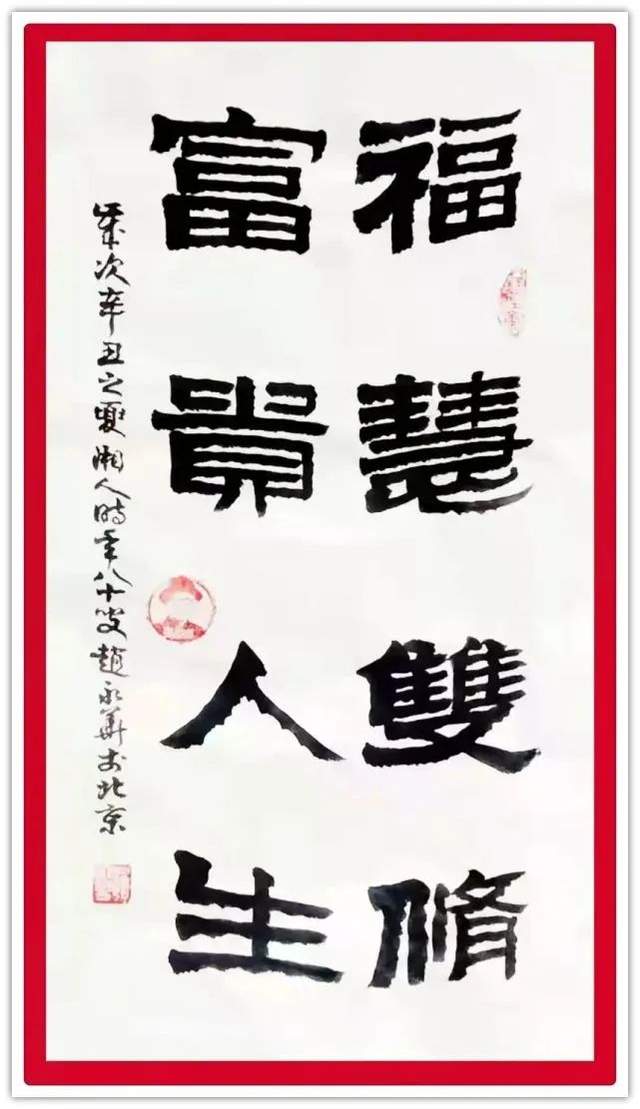 福慧雙脩
富貴人生
歲次辛丑之夏湘人時年八十叟趙永華於北京